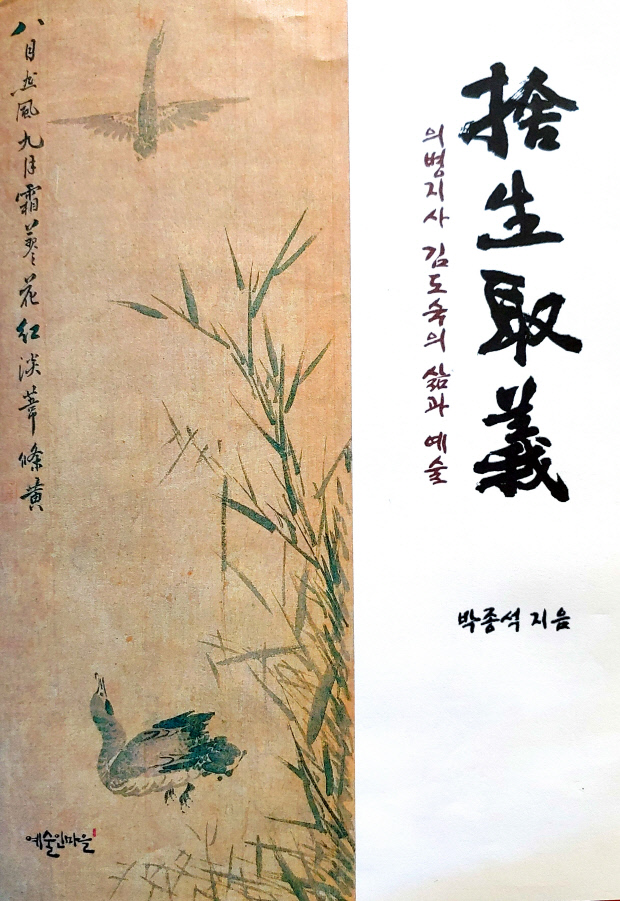 捨生取義
의병지사 김도숙의 삶과 예술
박종석 지음
八月悲風九月霜蓼花紅淡葦條黃
예술인마을